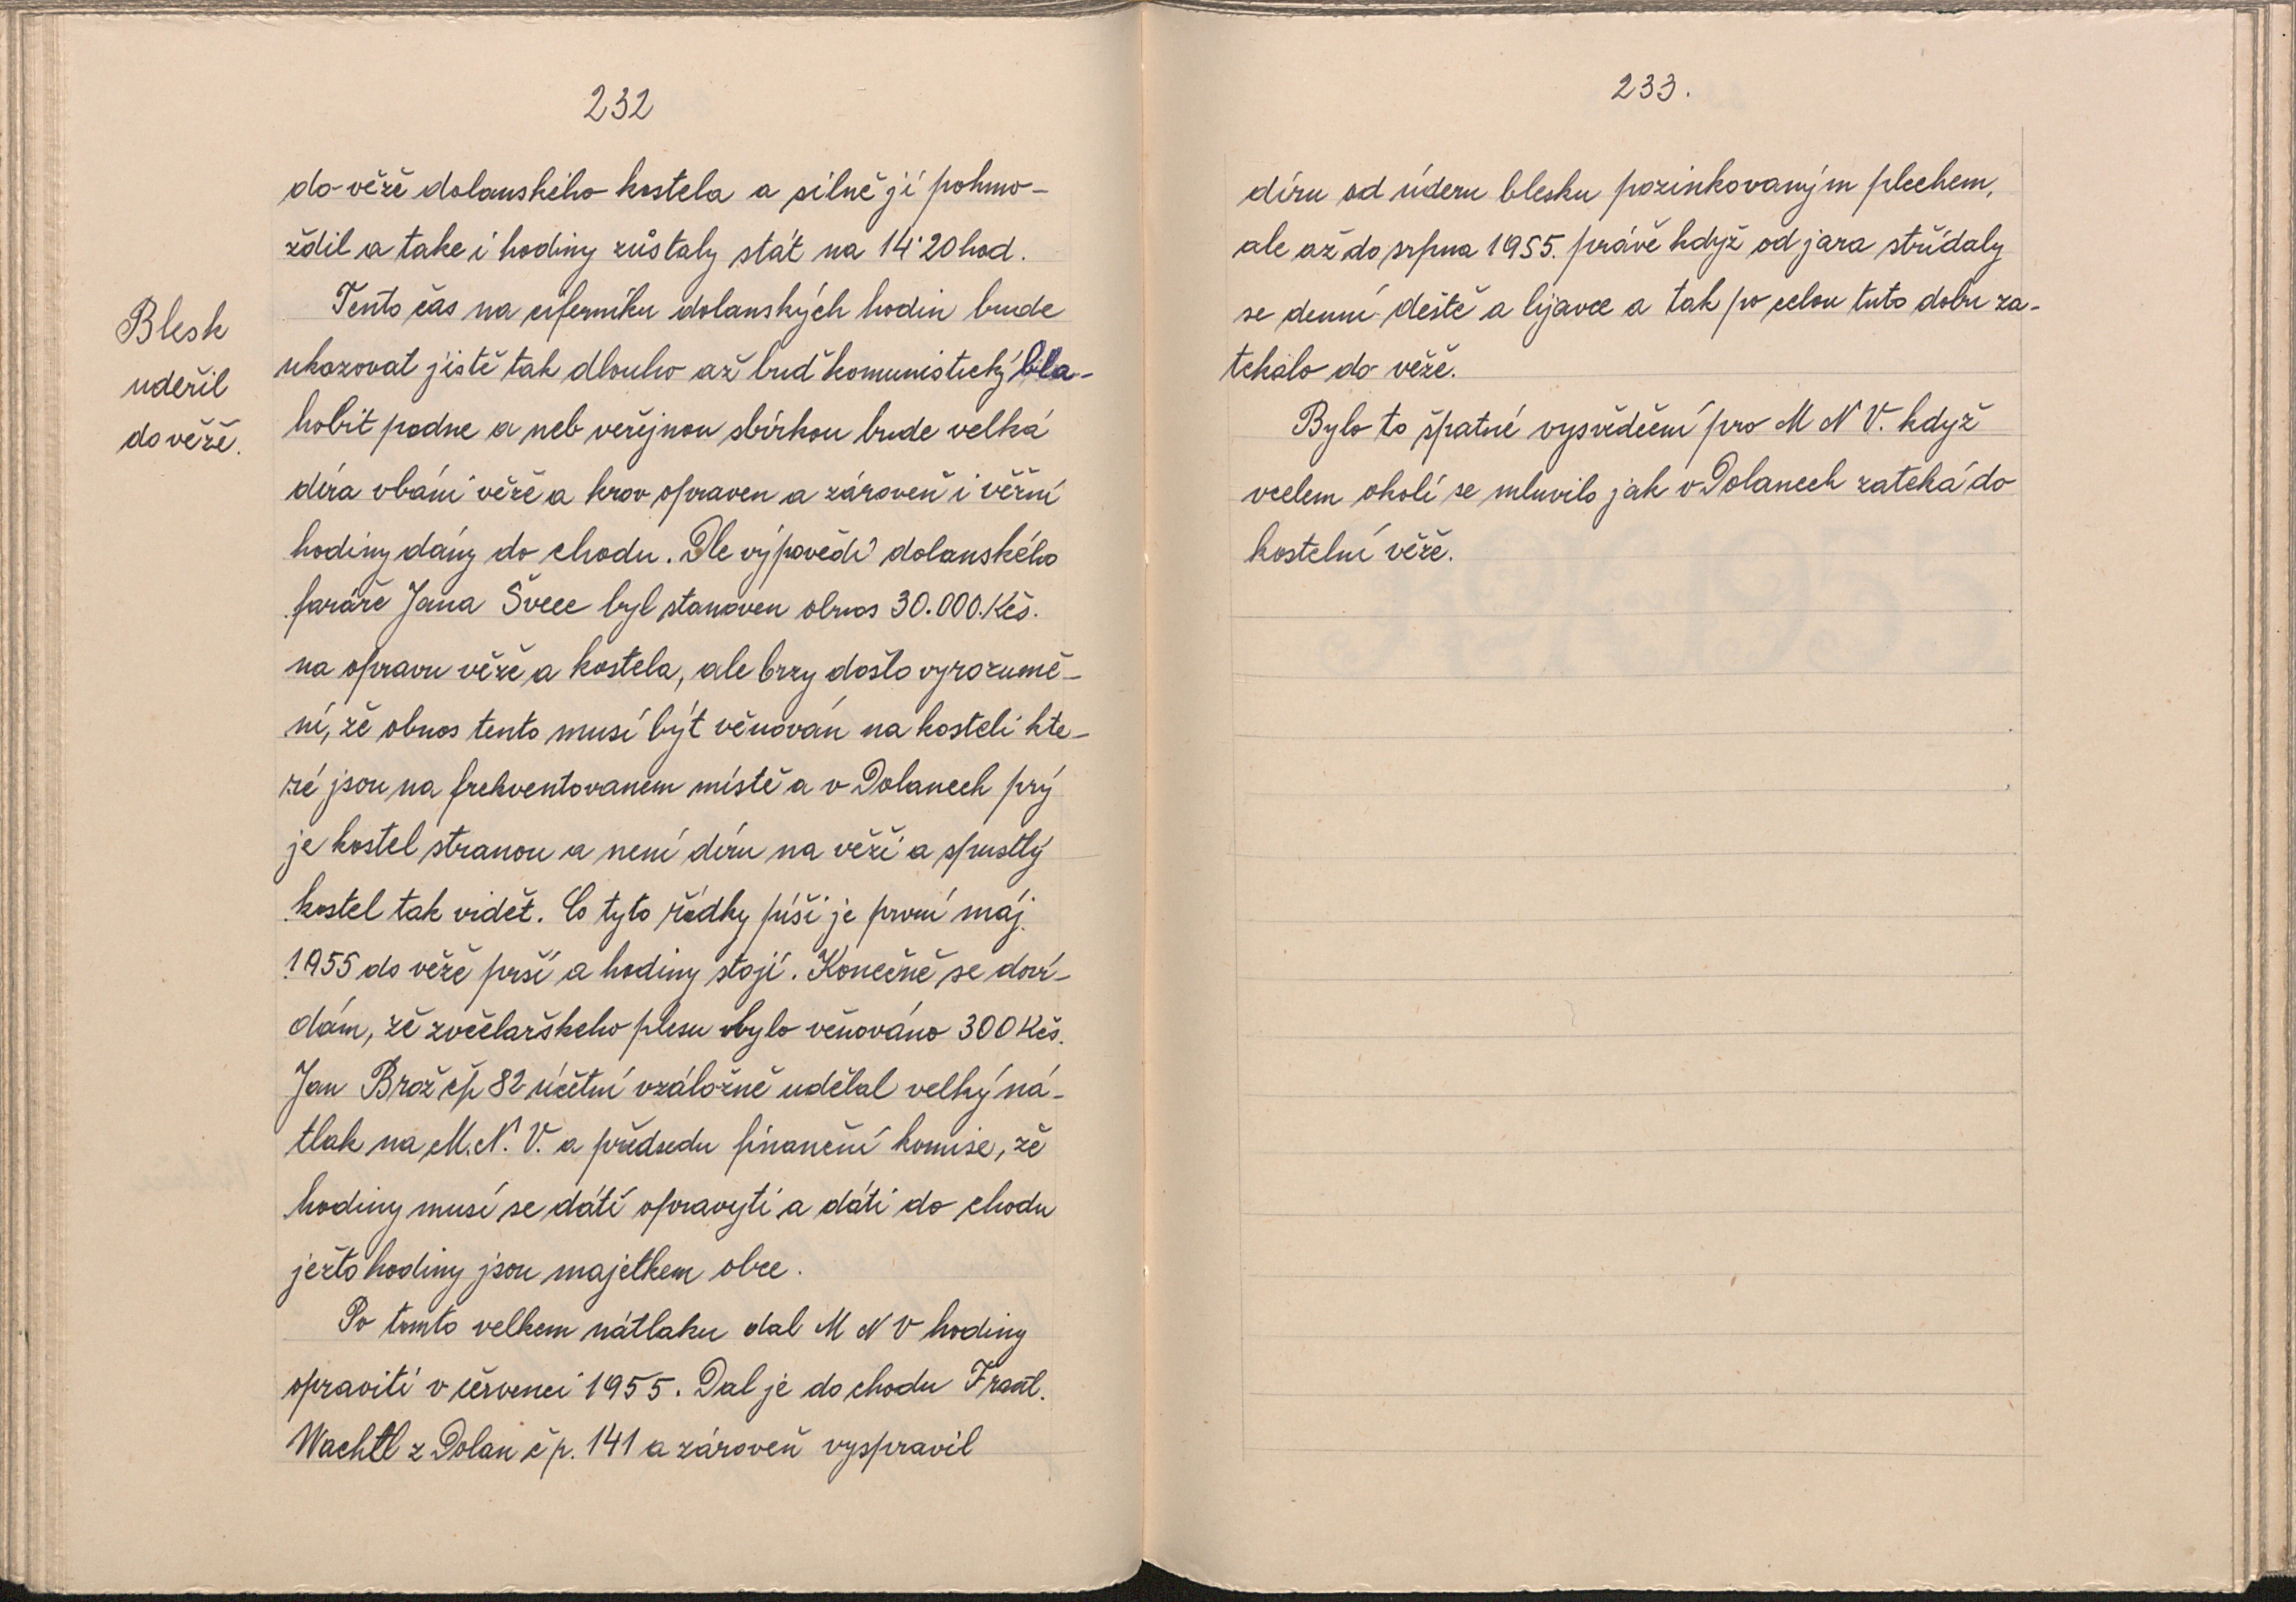 232
do věže dolanského kostela a silně ji pohmo-
ždil a take i hodiny zůstaly stát na 14˙20 hod.
Tento čas na ciferníku dolanských hodin bude
Blesk
uderil
do věžě.
ukazovat jistě tak dlouho až buď komunistický bla-
hobit padne a neb veřejnou sbírkou bude velká
díra vbáni věže a krov opraven a zároveň i věžní
hodiny dány do chodu. Dle výpovědi dolanského
faráře Jana Švece byl stanoven obnos 30.000.Kčs.
na opravu věže a kostela, ale brzy došlo vyrozumě-
ní, že obnos tento musí být věnován na kosteli kte-
ré jsou na frekventovanem místě a v Dolanech prý
je kostel stranou a není díru na věži a spustlý
kostel tak vidět. Co tyto řádky píši je první máj
1955 do věže prší a hodiny stojí. Konečně se doví-
dám, že zvčelařškeho plesu bylo věnováno 300 Kčs.
Jan Brož čp 82 účetní vzáložně udělal velký ná-
tlak na M.N.V. a předsedu finanční komise, že
hodiny musí se dáti opravyti a dáti do chodu
ježto hodiny jsou majetkem obce.
Po tomto velkem nátlaku dal M N V hodiny
opraviti v červenci 1955. Dal je do chodu Frant.
Wachtl z Dolan č p. 141 a zároveň vyspravil
233.
díru od úderu blesku pozinkovaným plechem,
ale až do srpna 1955. právě když od jara střídaly
se denní deště a lijavce a tak po celou tuto dobu za-
tekalo do věže.
Bylo to špatné vysvědčení pro M N V. když
vcelem okolí se mluvilo jak v Dolanech zateká do
kostelní věže.